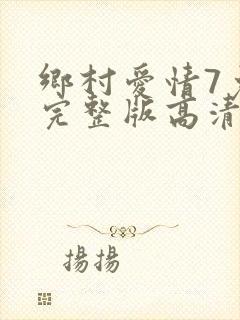 鄉村愛情7
完整版高清
揚揚